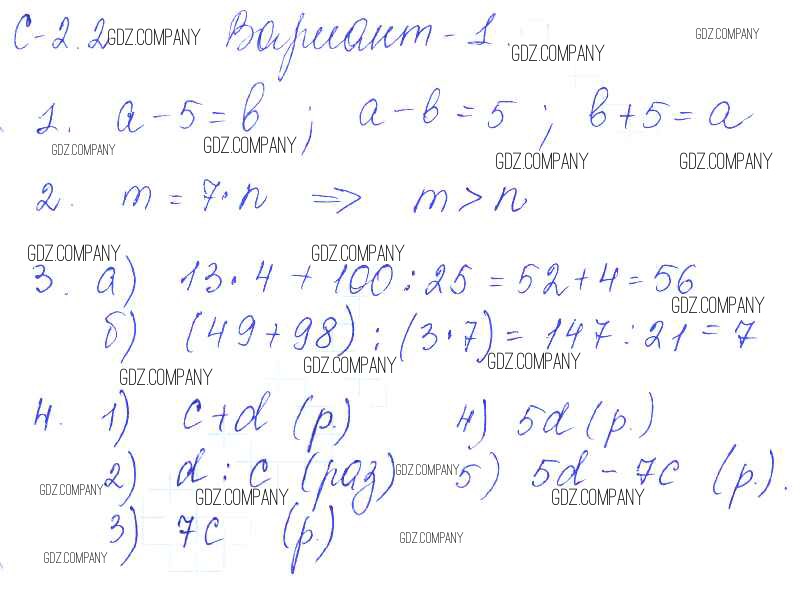 С-2.2 GDZ.COMPANY Вариант-1. GDZ.COMPANY GDZ.COMPANY
1. a-5=b ; a-b=5 ; b+5=a
GDZ.COMPANY GDZ.COMPANY GDZ.COMPANY GDZ.COMPANY
2. m = 7·n => m>n
GDZ.COMPANY GDZ.COMPANY
3. а) 13·4+100:25=52+4=56
GDZ.COMPANY
б) (49+98):(3·7)=147:21=7
GDZ.COMPANY GDZ.COMPANY GDZ.COMPANY
4. 1) c+d (р.) 4) 5d (р.)
2) d:c (раз) GDZ.COMPANY 5) 5d-7c (р.).
GDZ.COMPANY GDZ.COMPANY GDZ.COMPANY
3) 7c (р.) GDZ.COMPANY
GDZ.COMPANY